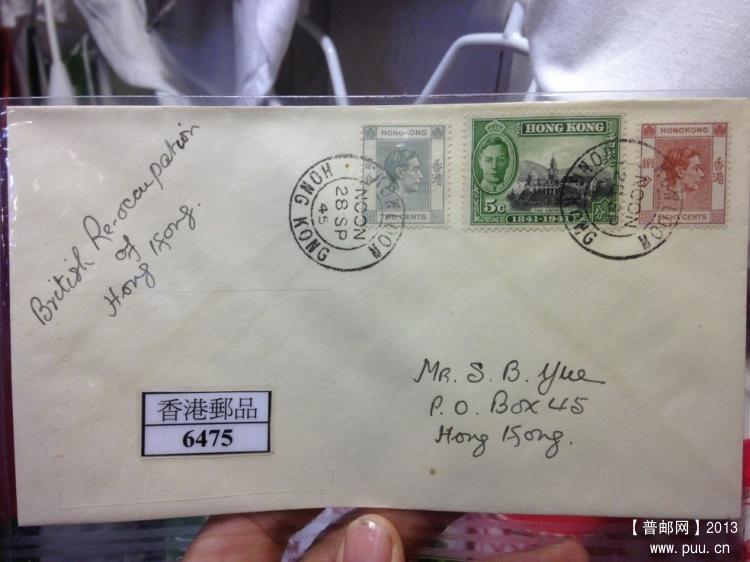 British Re-occupation
of
Hong Kong.
HONGKONG
香港
CENTS
HONG KONG
NOON
28 SP
45
HONG KONG
5c
1841-1941
HONGKONG
香港
捌
EIGHT CENTS
HONG KONG
NOON
Mr. S. B. Yue
P. O. Box 45
Hong Kong.
香港郵品
6475
【普邮网】2013
www.puu.cn